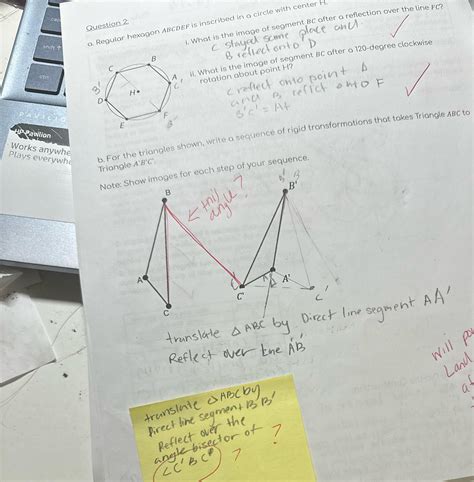 Question 2
a. Regular hexagon ABCDEF is inscribed in a circle with center H.
i. What is the image of segment BC after a reflection over the line FC?
C stayed same place and
B reflect onto D
ii. What is the image of segment BC after a 120-degree clockwise
rotation about point H?
C reflect onto point A
and B reflect onto F
B'C' = AF
C
B
A
C'
B'
D
H
E
F
B'
HP Pavilion
Works anywhere
Plays everywhere
b. For the triangles shown, write a sequence of rigid transformations that takes Triangle ABC to
Triangle A'B'C'.
Note: Show images for each step of your sequence.
B
← this
angle?
B' B
B'
A
C
C'
A
A'
C'
translate △ABC by Direct line segment AA'
Reflect over line A'B'
will
Land
translate △ABC by
Direct line segment BB'
Reflect over the
angle bisector of
∠C'BC
? ?